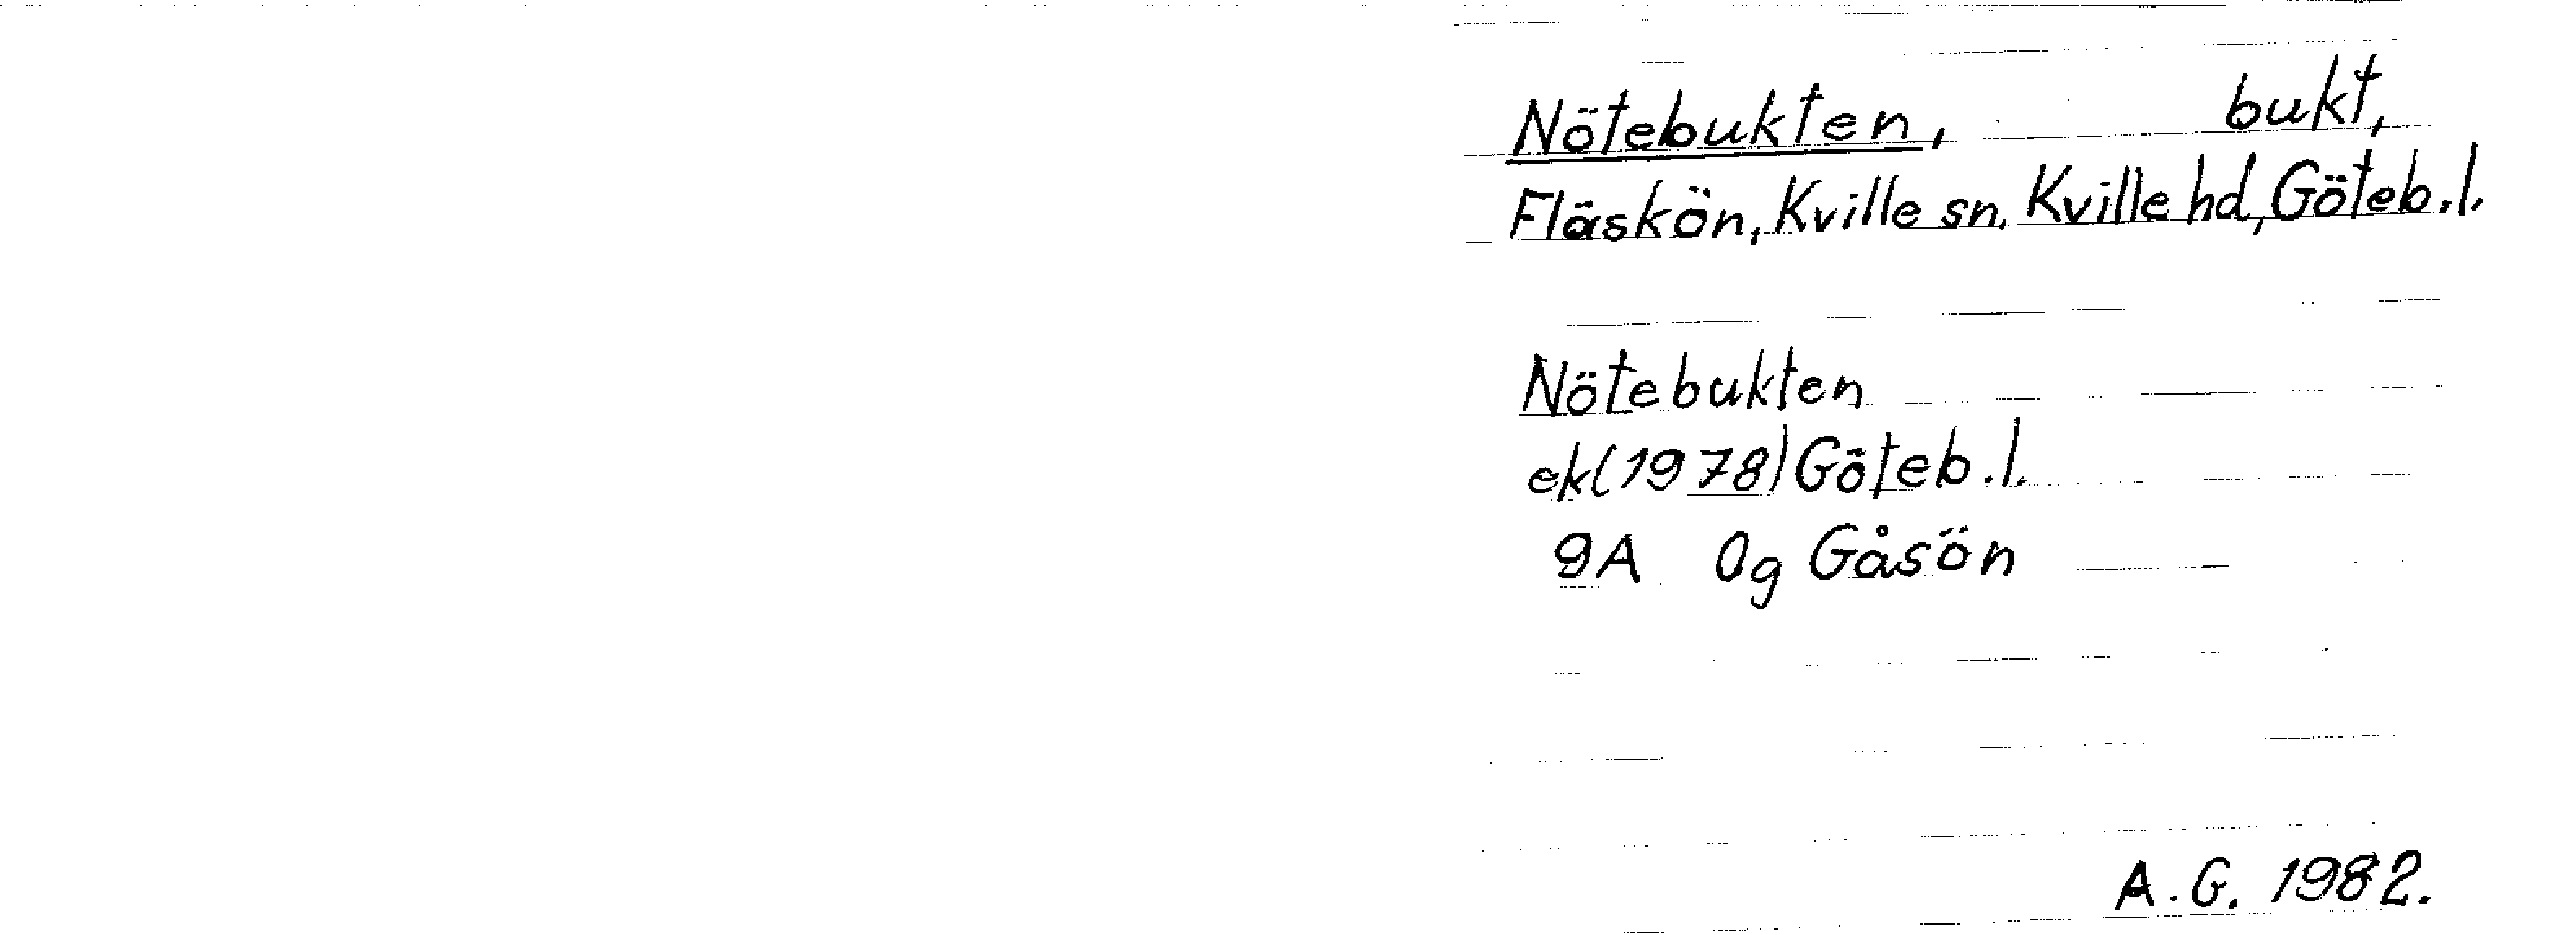 Nötebukten, bukt,
Fläskön, Kville sn. Kville hd, Göteb.l.
Nötebukten
ek(1978) Göteb.l.
9A 0g Gåsön
A.G. 1982.